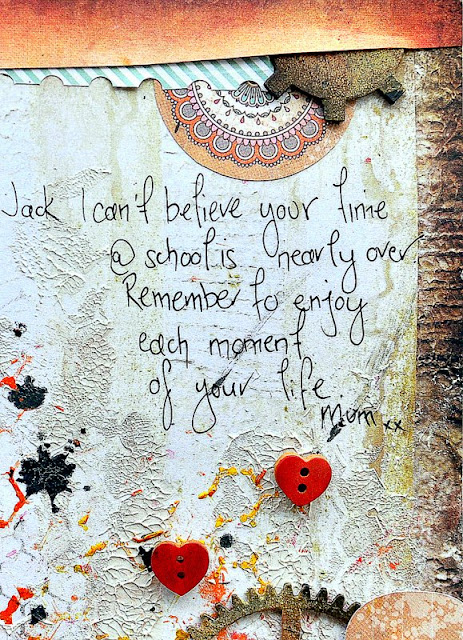 Jack I can't believe your time
@ school is nearly over.
Remember to enjoy
each moment
of your life
Mum xx